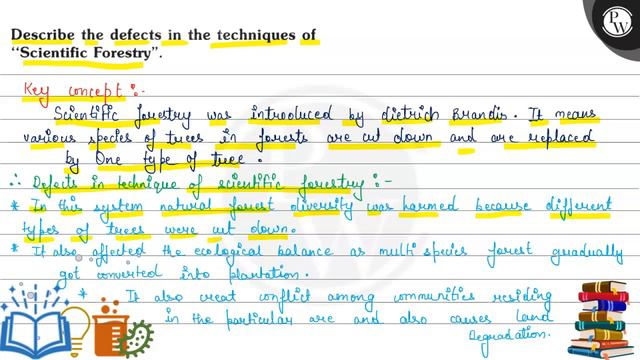 PW
Describe the defects in the techniques of
“Scientific Forestry”.
Key concept :-
Scientific forestry was introduced by dietrich Brandis. It means
various species of trees in forests are cut down and are replaced
by one type of tree.
∴ Defects in technique of scientific forestry :-
* In this system natural forest diversity was harmed because different
types of trees were cut down.
* It also affected the ecological balance as multi species forest gradually
got converted into plantation.
* It also creat conflict among communities residing
in the particular are and also causes land
Degradation.